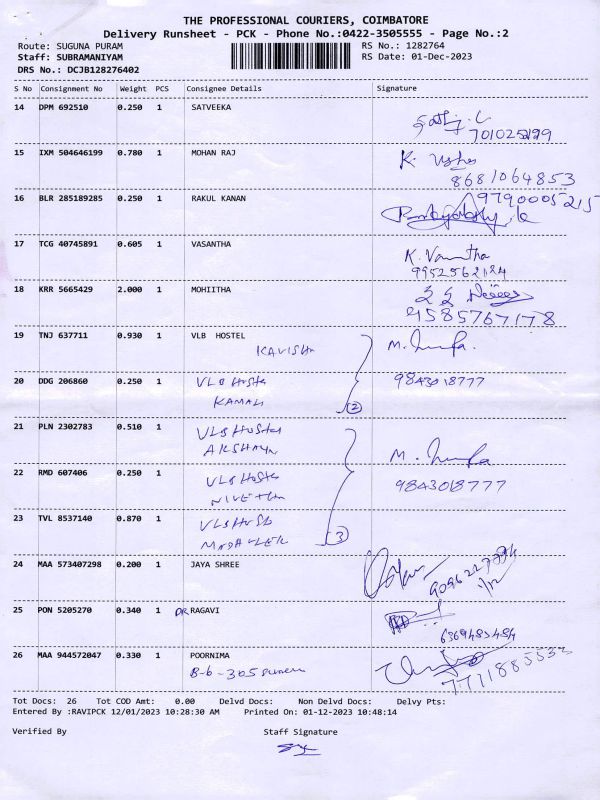 THE PROFESSIONAL COURIERS, COIMBATORE
Delivery Runsheet - PCK - Phone No.:0422-3505555 - Page No.:2
Route: SUGUNA PURAM RS No.: 1282764
Staff: SUBRAMANIYAM RS Date: 01-Dec-2023
DRS No.: DCJB128276402
S No Consignment No Weight PCS Consignee Details Signature
14 DPM 692510 0.250 1 SATVEEKA
15 IXM 504646199 0.780 1 MOHAN RAJ
K.
8681064853
16 BLR 285189285 0.250 1 RAKUL KANAN
9790005215
17 TCG 40745891 0.605 1 VASANTHA
K. Vasantha
9952562124
18 KRR 5665429 2.000 1 MOHIITHA
9585767178
19 TNJ 637711 0.930 1 VLB HOSTEL
M.
20 DDG 206860 0.250 1 VLB Hostel
9843018777
KAMALI
2
21 PLN 2302783 0.510 1 VLB Hostel
AKSHAYA
M.
22 RMD 607406 0.250 1 VLB Hostel
9843018777
23 TVL 8537140 0.870 1
3
24 MAA 573407298 0.200 1 JAYA SHREE
25 PON 5205270 0.340 1 DR RAGAVI
26 MAA 944572047 0.330 1 POORNIMA
B-6-305
Tot Docs: 26 Tot COD Amt: 0.00 Delvd Docs: Non Delvd Docs: Delvy Pts:
Entered By :RAVIPCK 12/01/2023 10:28:30 AM Printed On: 01-12-2023 10:48:14
Verified By Staff Signature